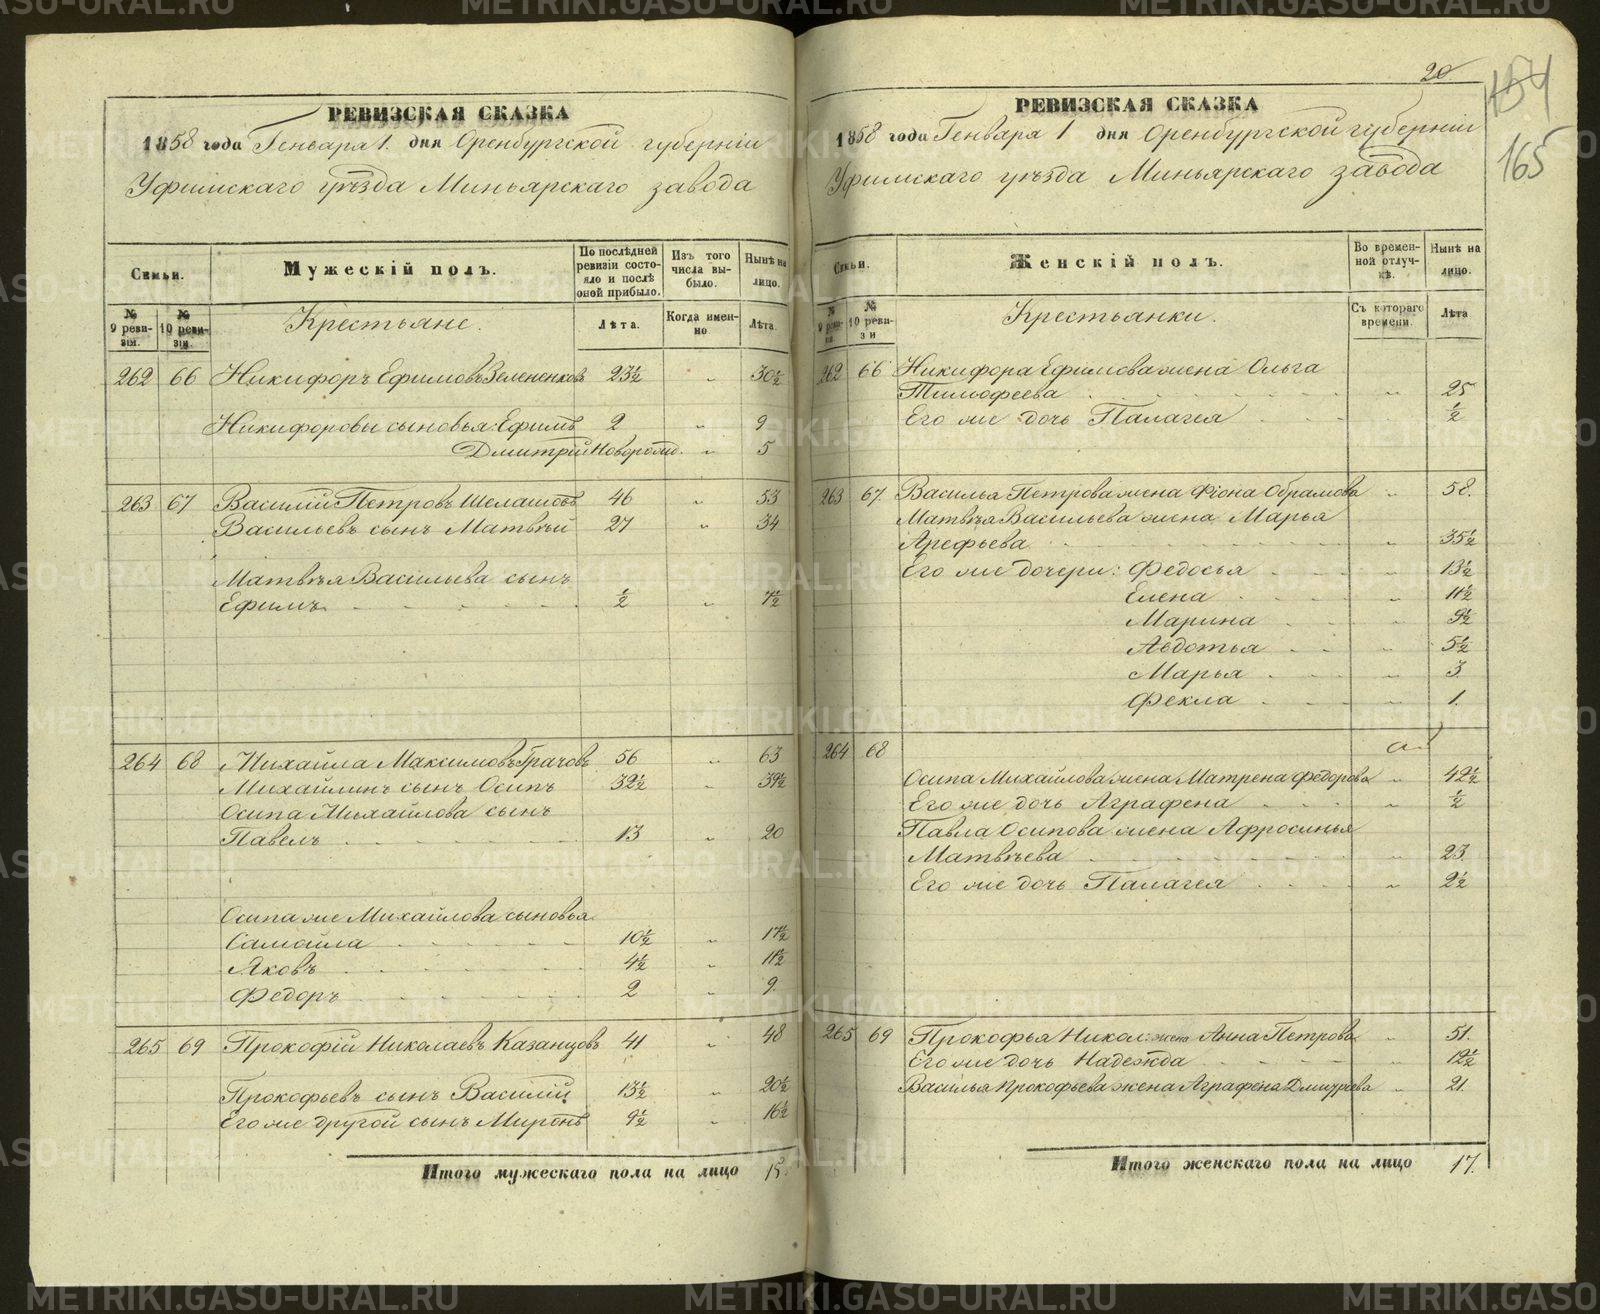 РЕВИЗСКАЯ СКАЗКА
1858 года Генваря 1. дня Оренбургской губерніи
Уфимскаго уѣзда Миньярскаго завода
Семьи.
Мужескій полъ.
По послѣдней ревизіи состояло и послѣ оной прибыло.
Изъ того числа выбыло.
Нынѣ на лицо.
№ 9 ревизіи.
№ 10 ревизіи.
Крестьяне.
Лѣта.
Когда именно
Лѣта.
262 66 Никифоръ Ефимовъ Зелененковъ 23½ „ 30½
Никифоровы сыновья: Ефимъ 2 „ 9
Дмитрій Новорожд. „ 5
263 67 Василій Петровъ Шелашовъ 46 „ 53
Васильевъ сынъ Матвѣй 27 „ 34
Матвѣя Васильева сынъ
Ефимъ ½ „ 7½
264 68 Михайла Максимовъ Грачовъ 56 „ 63
Михайлинъ сынъ Осипъ 32½ „ 39½
Осипа Михайлова сынъ
Павелъ 13 „ 20
Осипа же Михайлова сыновья
Самойла 10½ „ 17½
Яковъ 4½ „ 11½
Федоръ 2 „ 9.
265 69 Прокофій Николаевъ Казанцовъ 41 „ 48
Прокофьевъ сынъ Василій 13½ „ 20½
Его же другой сынъ Миронъ 9½ „ 16½
Итого мужескаго пола на лицо 15.
20
154
165
РЕВИЗСКАЯ СКАЗКА
1858 года Генваря 1 дня Оренбургской губерніи
Уфимскаго уѣзда Миньярскаго завода
Семьи.
Женскій полъ.
Во временной отлучкѣ.
Нынѣ на лицо.
№ 9 ревизіи
№ 10 ревизи
Крестьянки.
Съ котораго времени.
Лѣта
262 66 Никифора Ефимова жена Ольга
Тимофеева „ 25
Его же дочь Палагея „ ½
263 67. Василья Петрова жена Фіона Обрамова „ 58.
Матвѣя Васильева жена Марья
Арефьева „ 35½
Его же дочери: Федосья „ 13½
Елена „ 11½
Марина „ 9½
Авдотья „ 5½
Марья „ 3.
Фекла „ 1.
264 68
Осипа Михайлова жена Матрена Федорова „ 42½
Его же дочь Аграфена „ ½
Павла Осипова жена Афросинья
Матвѣева „ 23.
Его же дочь Палагея „ 2½
265 69 Прокофья Никол: жена Анна Петрова „ 51.
Его же дочь Надежда „ 12½
Василья Прокофьева жена Аграфена „ 21.
Итого женскаго пола на лицо 17.
METRIKI.GASO-URAL.RU